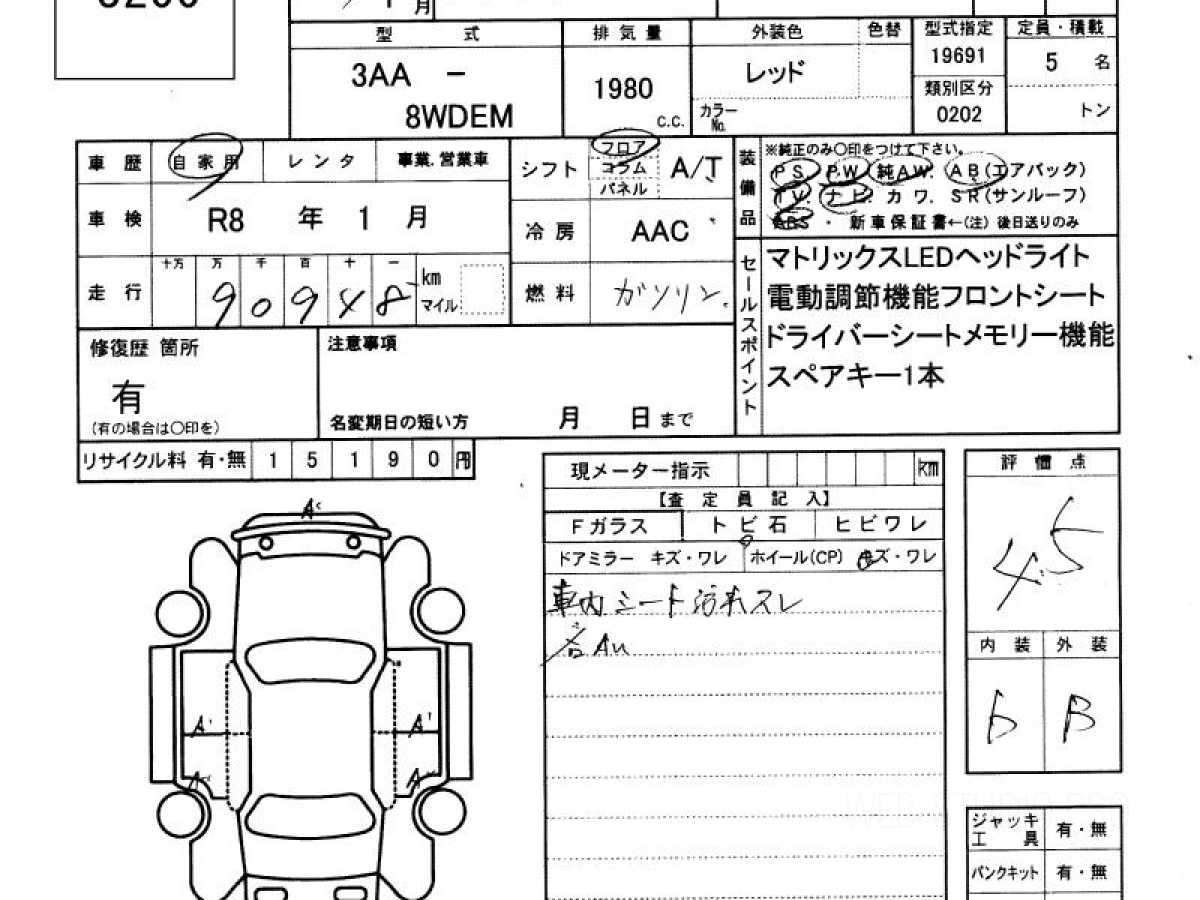 月
型 式
排 気 量
外装色
色替
型式指定
定員・積載
3AA －
8WDEM
1980
C.C.
レッド
カラー
No.
19691
類別区分
0202
5 名
トン
車 歴
自 家 用
レ ン タ
事業.営業車
シフト
フロア
コラム
パネル
A/T
装備品
※純正のみ〇印をつけて下さい。
PS. PW. 純AW. AB(エアバック)
TV. ナビ. カワ. SR(サンルーフ)
ABS ・ 新車保証書←(注) 後日送りのみ
車 検
R8 年 1 月
冷 房
AAC
走 行
十万 万 千 百 十 一
9 0 9 4 8
km
マイル
燃 料
ガソリン
セールスポイント
マトリックスLEDヘッドライト
電動調節機能フロントシート
ドライバーシートメモリー機能
スペアキー1本
修復歴 箇所
有
(有の場合は〇印を)
注意事項
名変期日の短い方 月 日まで
リサイクル料 有・無 1 5 1 9 0 円
現メーター指示
km
【査 定 員 記 入】
Fガラス
ト ビ 石
ヒ ビ ワ レ
ドアミラー キズ・ワレ
ホイール(CP) キズ・ワレ
車内シート汚れスレ
評 価 点
4.5
内 装
外 装
B
A
A'
A'
ジャッキ
工 具
有・無
パンクキット
有・無